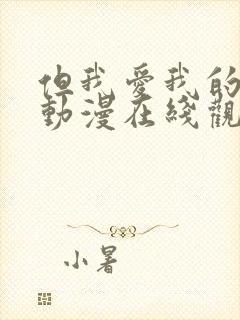 但我愛我的
動漫在綫觀
小暑